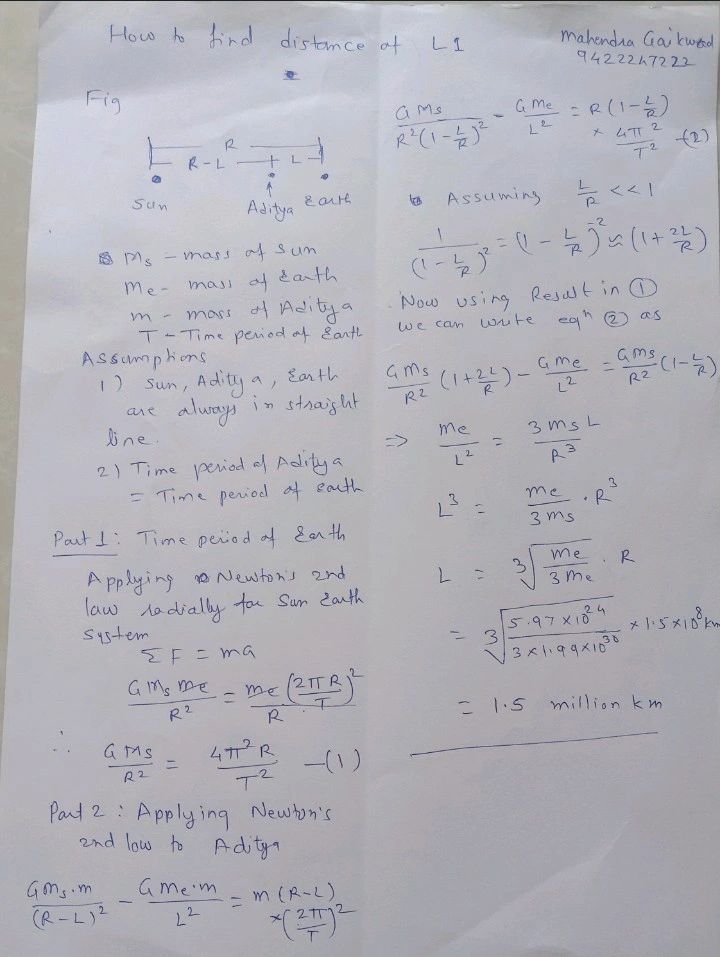 How to find distance of L1
Mahendra Gaikwad
9422247222
Fig
R
R-L L
Sun Aditya Earth
Ms - mass of Sun
Me - mass of Earth
m - mass of Aditya
T - Time period of Earth
Assumptions
1) Sun, Aditya, Earth
are always in straight
line.
2) Time period of Aditya
= Time period of earth
Part 1: Time period of Earth
Applying Newton's 2nd
law radially for Sun Earth
System
ΣF = ma
G Ms Me / R² = Me/R (2πR/T)²
∴ G Ms / R² = 4π²R / T² —(1)
Part 2 : Applying Newton's
2nd low to Aditya
G Ms·m / (R-L)² - G Me·m / L² = m (R-L)
×(2π/T)²
G Ms / R²(1-L/R)² - G Me / L² = R(1-L/R)
× 4π²/T² -(2)
Assuming L/R << 1
1/(1-L/R)² = (1-L/R)⁻² ≈ (1+2L/R)
Now using Result in ①
we can write eqⁿ ② as
G Ms/R² (1+2L/R) - G Me/L² = G Ms/R² (1-L/R)
=> Me/L² = 3 Ms L/R³
L³ = Me/3Ms · R³
L = ∛(Me/3Me) · R
= ∛(5.97×10²⁴ / 3×1.99×10³⁰) × 1.5×10⁸ km
= 1.5 million km